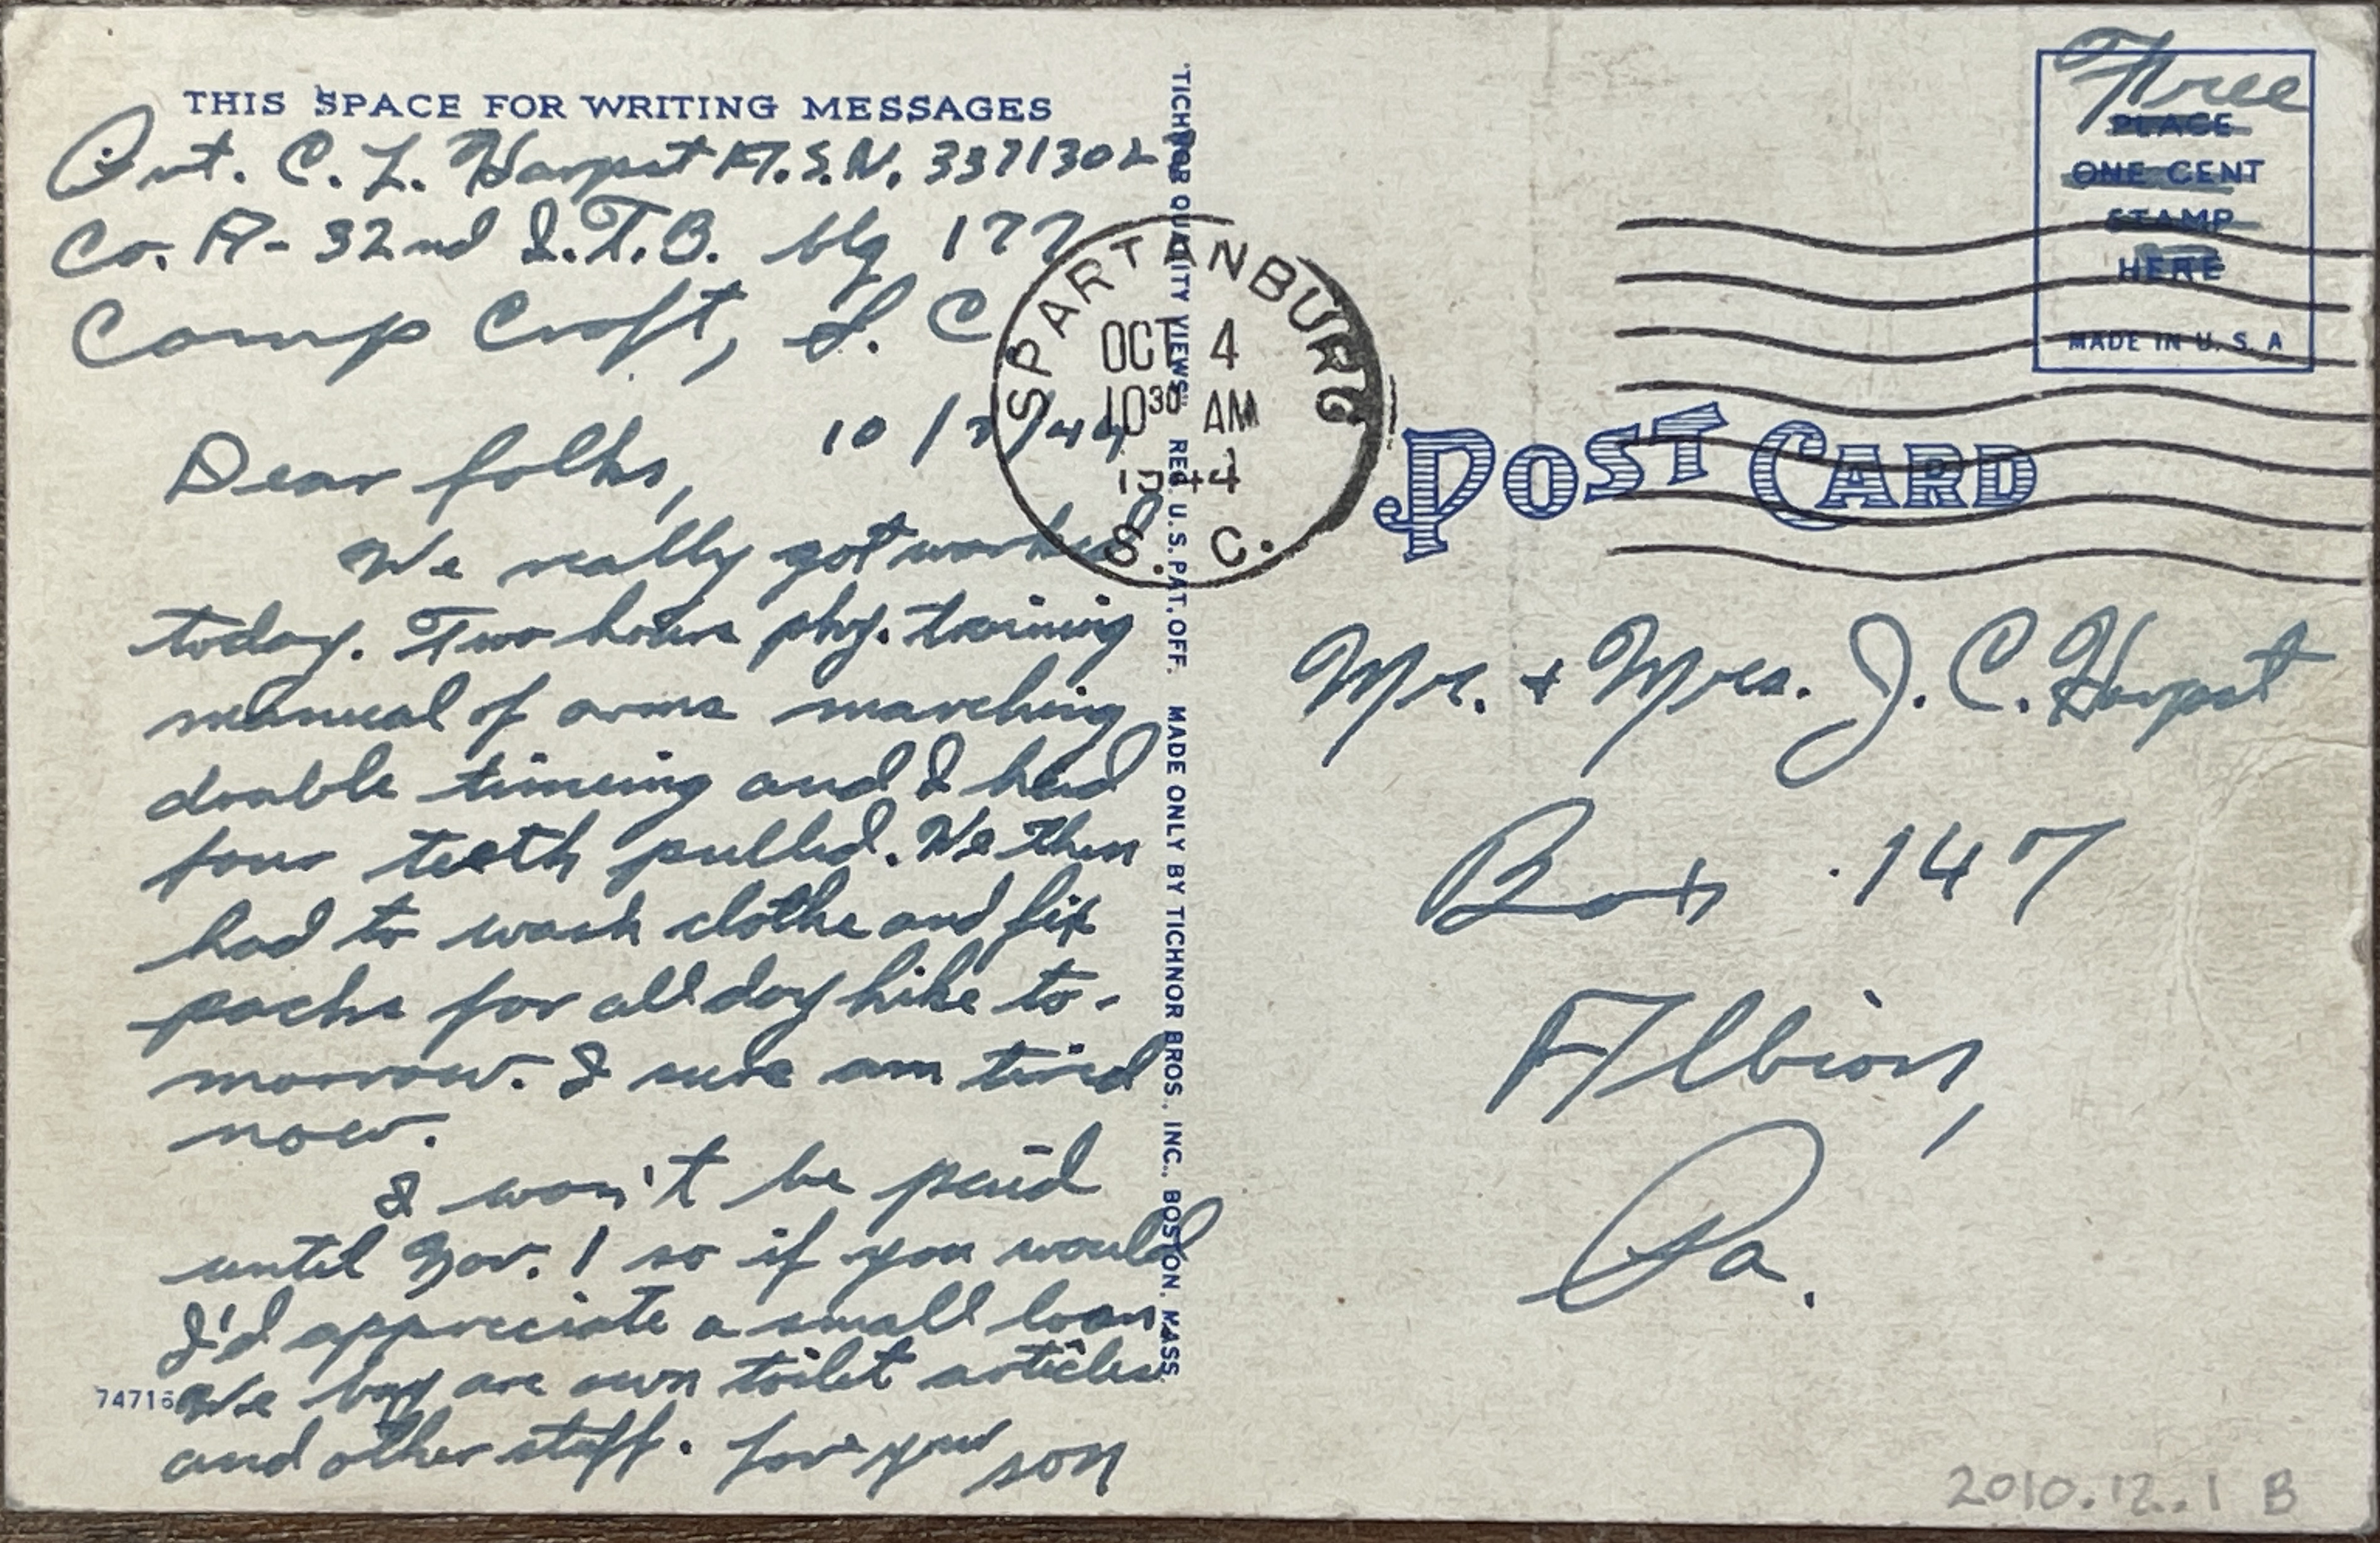 THIS SPACE FOR WRITING MESSAGES
Pvt. C. L. Harpst A.S.N.
Co. A- 32nd I.T.B. blg 177
Camp Croft, S. C
10/3/44
Dear folks,
We really got worked
today. Two hours phy. training
manual of arms marching
double timing and I had
four teeth pulled. We then
had to wash clothe and fix
packs for all day hike to-
morrow. I sure am tired
now.
I won't be paid
until Nov. 1 so if you would
I'd appreciate a small loan.
We buy are own toilet articles
and other stuff. Love your son
74716
"TICHNOR QUALITY VIEWS" REG. U.S. PAT. OFF. MADE ONLY BY TICHNOR BROS., INC., BOSTON, MASS.
SPARTANBURG
OCT 4
10 30 AM
1944
S. C.
Free
PLACE
ONE CENT
STAMP
HERE
MADE IN U. S. A
POST CARD
Mr. + Mrs. J. C. Harpst
Box 147
Albion,
Pa.
2010.12.1 B